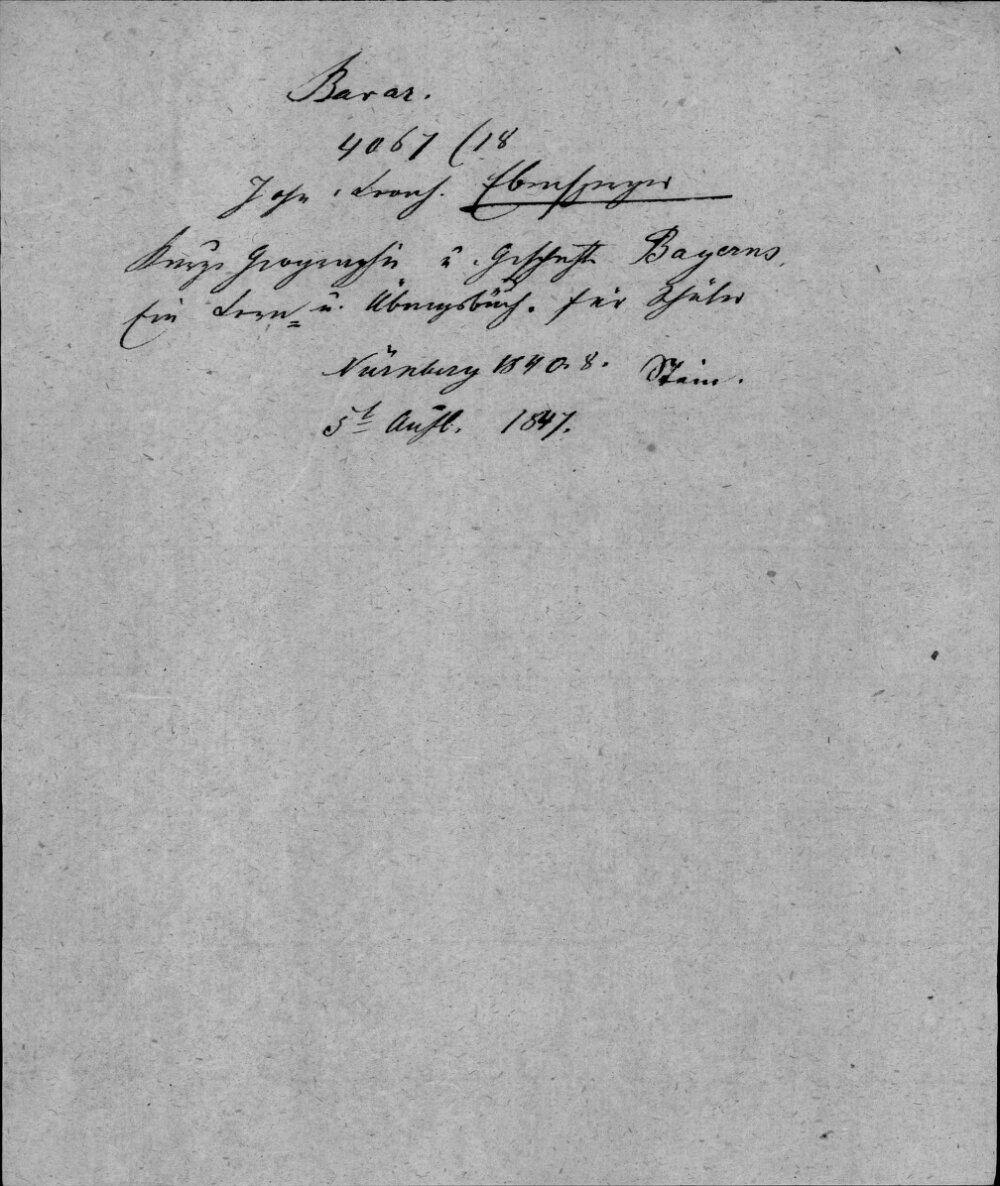 Bavar.
4067 (18
Joh. Leonh. Ebensperger
Kurze Geographie u. Geschichte Bayerns.
Ein Lern= u. Übungsbuch. für Schüler
Nürnberg 1840. 8. Stein.
5t Aufl. 1847.